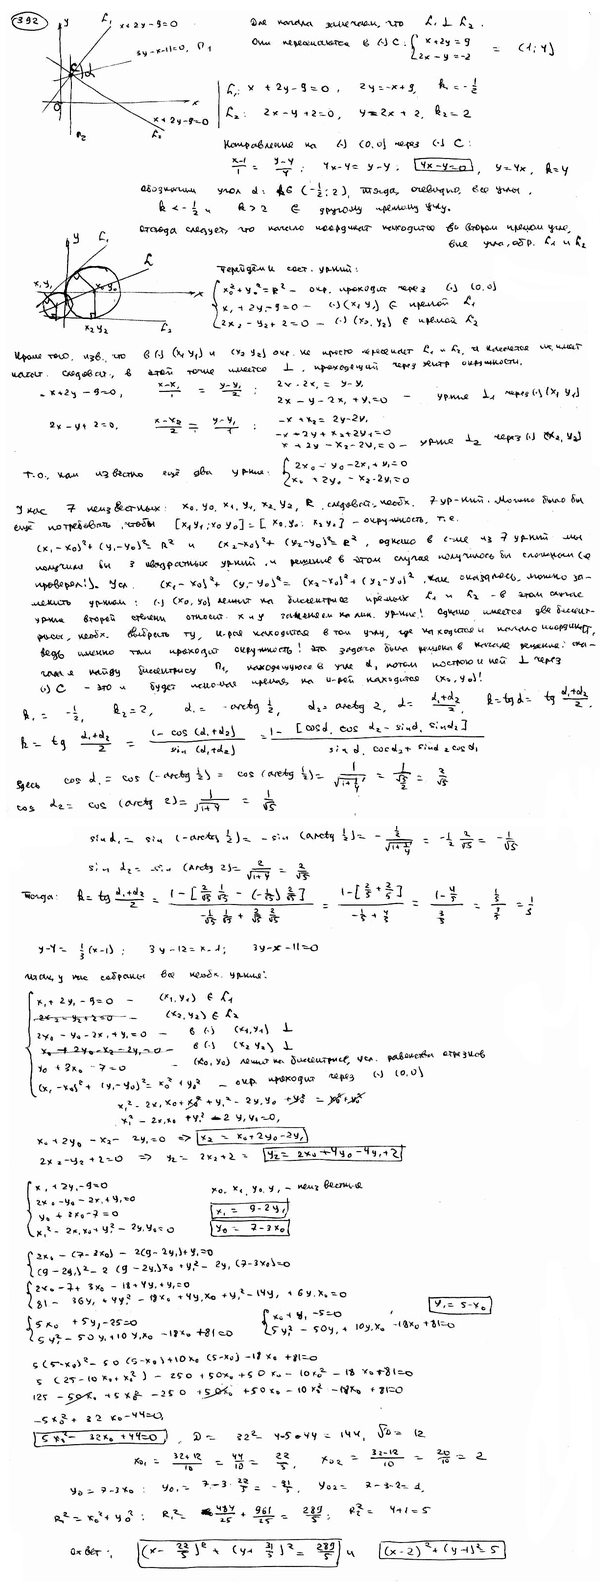 392
y
L₁
x+2y-9=0
3y-x-11=0, П₁
C
α
0
x
x+2y-9=0
П₂
L₂
Для начала замечаем, что L₁ ⊥ L₂.
Они пересекаются в (·) C: { x+2y=9 2x-y=-2 = (1;4)
L₁: x+2y-9=0, 2y=-x+9, k₁=-1/2
L₂: 2x-y+2=0, y=2x+2, k₂=2
Направление на (·) (0,0) через (·) C:
(x-1)/1 = (y-4)/4; 4x-4=y-4; 4x-y=0, y=4x, k=4
обозначим угол α: k∈(-1/2;2), тогда, очевидно, все углы,
k<-1/2 и k>2 ∈ другому прямому углу.
Отсюда следует, что начало координат находится во втором прямом угле,
вне угла, обр. L₁ и L₂
y
L₁
L
x₁y₁
x₀y₀
x
x₂y₂
L₂
Перейдём к сост. ур-ний:
{ x₀²+y₀²=R² - окр. проходит через (·) (0,0)
x₁+2y₁-9=0 - (·)(x₁y₁) ∈ прямой L₁
2x₂-y₂+2=0 - (·)(x₂,y₂) ∈ прямой L₂
Кроме того, изв. что в (·) (x₁y₁) и (x₂y₂) окр. не просто пересекает L₁ и L₂, а
касат. следоват., в этой точке имеется ⊥, проходящий через центр окружности.
x+2y-9=0, (x-x₁)/1 = (y-y₁)/2; 2x-2x₁=y-y₁
2x-y-2x₁+y₁=0 - ур-ние ⊥₁ через (·)(x₁y₁)
2x-y+2=0, (x-x₂)/2 = (y-y₂)/-1; -x+x₂=2y-2y₂
-x-2y+x₂+2y₂=0
x+2y-x₂-2y₂=0 - ур-ние ⊥₂ через (·)(x₂,y₂)
Т.о., нам известно ещё два ур-ния: { 2x₀-y₀-2x₁+y₁=0 x₀+2y₀-x₂-2y₂=0
У нас 7 неизвестных: x₀ y₀ x₁ y₁ x₂ y₂, R следоват. необх. 7 ур-ний. Можно было бы
ещё потребовать, чтобы [x₁y₁;x₀y₀]=[x₀y₀;x₂y₂] - окружность, т.е.
(x₁-x₀)²+(y₁-y₀)²=R² и (x₂-x₀)²+(y₂-y₀)²=R², однако в с-ме из 7 ур-ний мы
получили бы 3 квадратных ур-ний, и решение в этом случае получилось бы сложным (я
проверял!). Усл. (x₁-x₀)²+(y₁-y₀)²=(x₂-x₀)²+(y₂-y₀)², как оказалось, можно за-
менить ур-ним: (·)(x₀,y₀) лежит на биссектрисе прямых L₁ и L₂ - в этом случае
ур-ние второй степени относит. x и y заменяем на лин. ур-ние! Однако имеется две биссект-
рисы, необх. выбрать ту, к-рая находится в том углу, где находится и начало координат,
ведь именно там проходит окружность! Эта задача была решена в начале решения: сна-
чала я найду биссектрису П₁, находящуюся в угле α, потом построю к ней ⊥ через
(·) C - это и будет искомая прямая, на к-рой находится (x₀,y₀)!
k₁=-1/2, k₂=2, α₁=-arctg 1/2, α₂=arctg 2, α=(α₁+α₂)/2, k=tg α=tg (α₁+α₂)/2.
k=tg (α₁+α₂)/2 = (1-cos(α₁+α₂))/sin(α₁+α₂) = (1-[cosα₁ cosα₂-sinα₁ sinα₂])/(sinα₁ cosα₂+sinα₂ cosα₁)
Здесь cos α₁=cos(-arctg 1/2)=cos(arctg 1/2)=1/√(1+1/4)=1/(√5/2)=2/√5
cos α₂=cos(arctg 2)=1/√(1+4)=1/√5
sin α₁=sin(-arctg 1/2)=-sin(arctg 1/2)=-(1/2)/√(1+1/4)=-1/2 · 2/√5=-1/√5
sin α₂=sin(arctg 2)=2/√(1+4)=2/√5
Тогда: k=tg (α₁+α₂)/2 = (1-[2/√5 1/√5-(-1/√5) 2/√5])/(-1/√5 1/√5+2/√5 2/√5) = (1-[2/5+2/5])/(-1/5+4/5) = (1-4/5)/(3/5) = (1/5)/(3/5) = 1/3
y-4=1/3(x-1); 3y-12=x-1; 3y-x-11=0
Итак, у нас собраны все необх. ур-ния:
{ x₁+2y₁-9=0 - (x₁,y₁) ∈ L₁
2x₂-y₂+2=0 - (x₂,y₂) ∈ L₂
2x₀-y₀-2x₁+y₁=0 - в (·) (x₁y₁) ⊥
x₀+2y₀-x₂-2y₂=0 - в (·) (x₂y₂) ⊥
y₀+3x₀-7=0 - (x₀,y₀) лежит на биссектрисе, усл. равенства отрезков
(x₁-x₀)²+(y₁-y₀)²=x₀²+y₀² - окр. проходит через (·) (0,0)
x₁²-2x₁x₀+x₀²+y₁²-2y₁y₀+y₀²=x₀²+y₀²
x₁²-2x₁x₀+y₁²-2y₁y₀=0,
x₀+2y₀-x₂-2y₂=0 => x₂=x₀+2y₀-2y₂
2x₂-y₂+2=0 => y₂=2x₂+2= y₂=2x₀+4y₀-4y₂+2
{ x₁+2y₁-9=0
2x₀-y₀-2x₁+y₁=0
y₀+3x₀-7=0
x₁²-2x₁x₀+y₁²-2y₁y₀=0
x₀, x₁, y₀, y₁ - неизвестные
x₁=9-2y₁
y₀=7-3x₀
{ 2x₀-(7-3x₀)-2(9-2y₁)+y₁=0
(9-2y₁)²-2(9-2y₁)x₀+y₁²-2y₁(7-3x₀)=0
{ 2x₀-7+3x₀-18+4y₁+y₁=0
81-36y₁+4y₁²-18x₀+4y₁x₀+y₁²-14y₁+6y₁x₀=0
{ 5x₀+5y₁-25=0 5y₁²-50y₁+10y₁x₀-18x₀+81=0
{ x₀+y₁-5=0 5y₁²-50y₁+10y₁x₀-18x₀+81=0
y₁=5-x₀
5(5-x₀)²-50(5-x₀)+10x₀(5-x₀)-18x₀+81=0
5(25-10x₀+x₀²)-250+50x₀+50x₀-10x₀²-18x₀+81=0
125-50x₀+5x₀²-250+50x₀+50x₀-10x₀²-18x₀+81=0
-5x₀²+32x₀-44=0,
5x₀²-32x₀+44=0, D=32²-4·5·44=144, √D=12
x₀₁=(32+12)/10=44/10=22/5, x₀₂=(32-12)/10=20/10=2
y₀=7-3x₀; y₀₁=7-3·22/5=-31/5, y₀₂=7-3·2=1,
R²=x₀²+y₀²; R₁²=484/25+961/25=289/5; R₂²=4+1=5
Ответ: (x-22/5)²+(y+31/5)²=289/5 и (x-2)²+(y-1)²=5